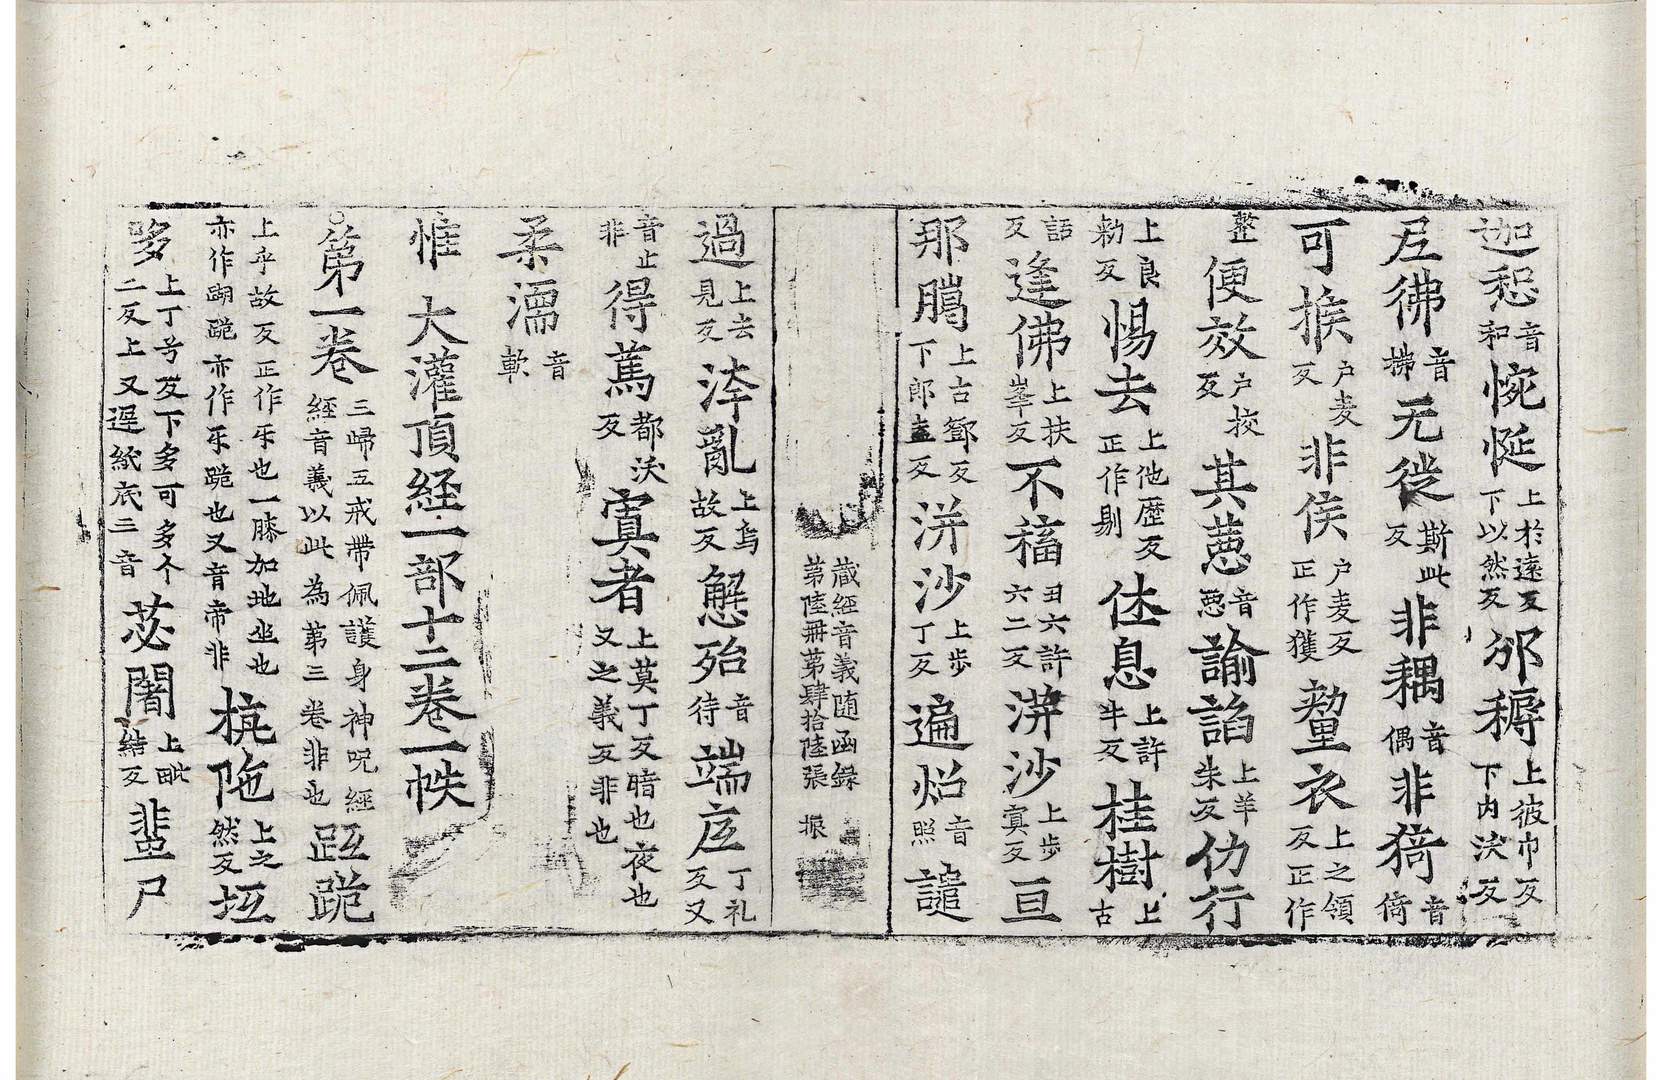 迦惒音和惋㤪上於遠反下以然反邠耨上彼巾反下內決反
尼彿音拂无徙斯此反非耦音偶非犄音倚
可㨋户麦反非侯户麦反正作獲衣上之領反正作
整便效户挍反其音悪諭諂上羊朱反仂行
上良勑反惕去上他歷反正作剔㑅息上許牛反桂樹上古
話反逢佛上扶峯反不稸丑六許六二反洴沙上步㝠反亘
那上古鄧反下郎盍反洴沙上步丁反遍炤音照譴
藏經音義随函録
第陸冊第肆拾陸張 振
過上去見反洿亂上烏故反懈殆音待端㡳丁礼反又
音止非得篤都沃反㝠者上莫丁反暗也夜也又之義反非也
柔濡音軟
惟 大灌頂経一部十二卷一帙
第一卷三歸五戒帶佩護身神呪經經音義以此為第三卷非也跪
上乎故反正作乐也一膝加地㘴也亦作跪亦作乐跪也又音帝非陁上之然反坘
哆上丁兮反下多可多个二反上又遲紙底二音苾闍上毗結反韮尸